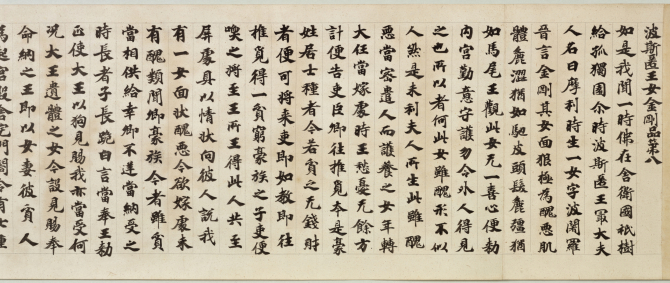 波斯匿王女金剛品第八
如是我聞一時佛在舍衛國祇樹
給孤獨園尒時波斯匿王最大夫
人名曰摩利時生一女字波闍羅
晉言金剛其女面狠極為醜惡肌
體麁澀猶如駝皮頭髮麁彊猶
如馬尾王觀此女无一喜心便勑
內宮勤意守護勿令外人得見
之也所以者何此女雖醜形不似
人然是末利夫人所生此雖醜
惡當密遣人而護養之女年轉
大任當嫁處時王愁憂无餘方
計便告吏臣卿往推覓本是豪
姓居士種者今若貧乏无錢財
者便可將來吏即如教即往
推覓得一貧窮豪族之子吏便
喚之將至王所王得此人共至
屏處具以情狀向彼人說我
有一女面狀醜惡今欲嫁處未
有醜類聞卿豪族今者雖貧
當相供給幸卿不逆當納受之
時長者子長跪白言當奉王勑
正使大王以狗見賜我亦當受何
況大王遺體之女今設見賜奉
命納之王即以女妻彼貧人
為起宮殿舍宅門閤令有七重